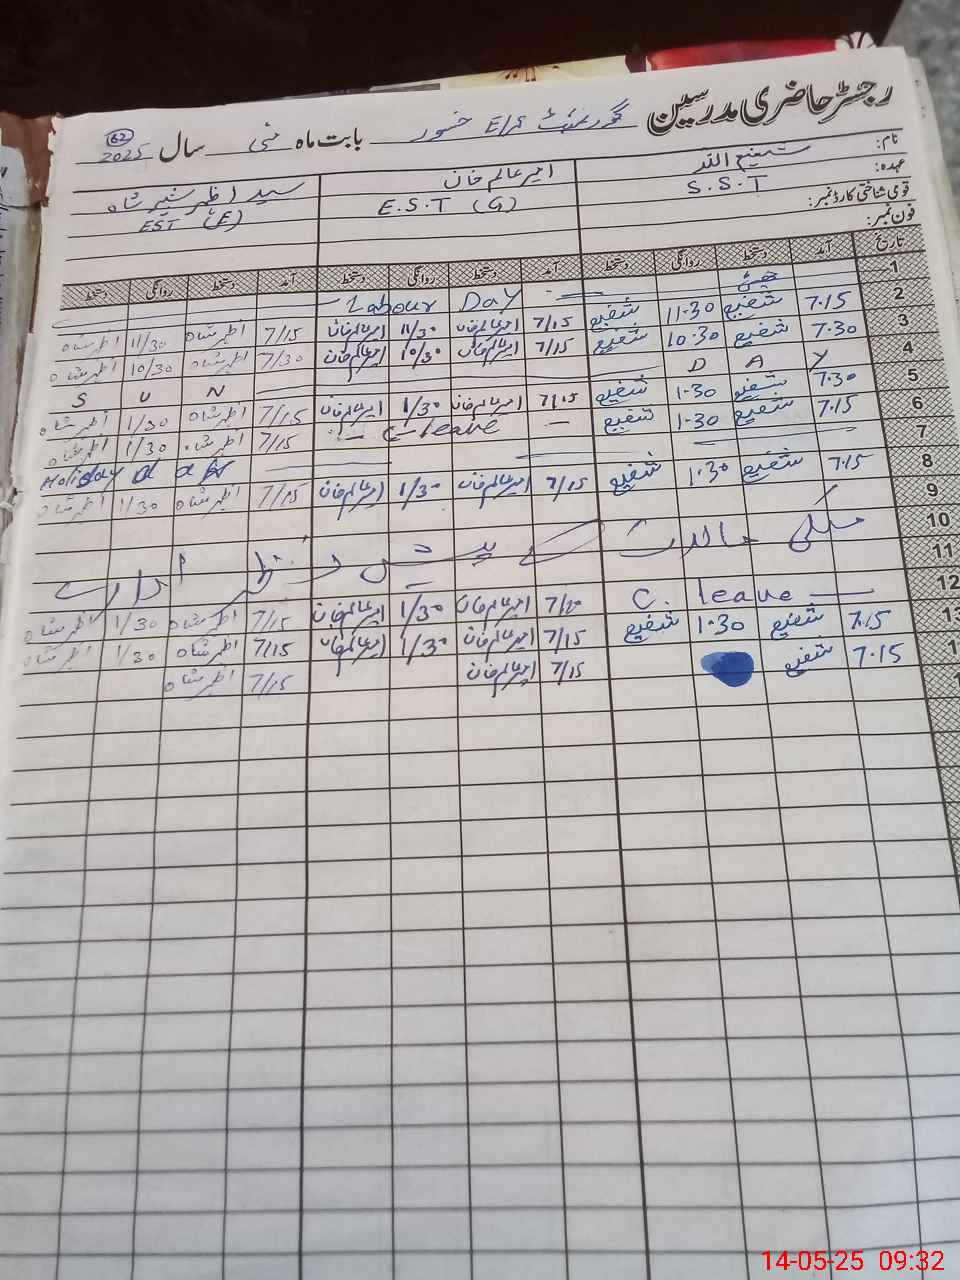 رجسٹر حاضری مدرسین گورنمنٹ بابت ماہ مئی سال 2025 62
نام: شفیع اللہ امیر عالم خان سید اظہر شبیر شاہ
عہدہ: S.S.T E.S.T (G) EST (E)
قومی شناختی کارڈ نمبر:
فون نمبر:
تاریخ آمد دستخط روانگی دستخط آمد دستخط روانگی دستخط آمد دستخط روانگی دستخط
1 Labour Day
2 7.15 شفیع 11.30 شفیع 7/15 امیر عالم خان 11/30 امیر عالم خان 7/15 اظہر شاہ 11/30 اظہر شاہ
3 7.30 شفیع 10.30 شفیع 7/15 امیر عالم خان 10/30 امیر عالم خان 7/30 اظہر شاہ 10/30 اظہر شاہ
4 S U N D A Y
5 7.30 شفیع 1.30 شفیع 7/15 امیر عالم خان 1/30 امیر عالم خان 7/15 اظہر شاہ 1/30 اظہر شاہ
6 7.15 شفیع 1.30 شفیع C leave 7/15 اظہر شاہ 1/30 اظہر شاہ
7 Holiday
8 7.15 شفیع 1.30 شفیع 7/15 امیر عالم خان 1/30 امیر عالم خان 7/15 اظہر شاہ 1/30 اظہر شاہ
9
10 ملکی حالات کے پیش نظر
11
12 C. leave امیر عالم خان 1/30 امیر عالم خان 7/15 اظہر شاہ 1/30 اظہر شاہ
7.15 شفیع 1.30 شفیع 7/15 امیر عالم خان 1/30 امیر عالم خان 7/15 اظہر شاہ 1/30 اظہر شاہ
7.15 شفیع 7/15 امیر عالم خان 7/15 اظہر شاہ
14-05-25 09:32